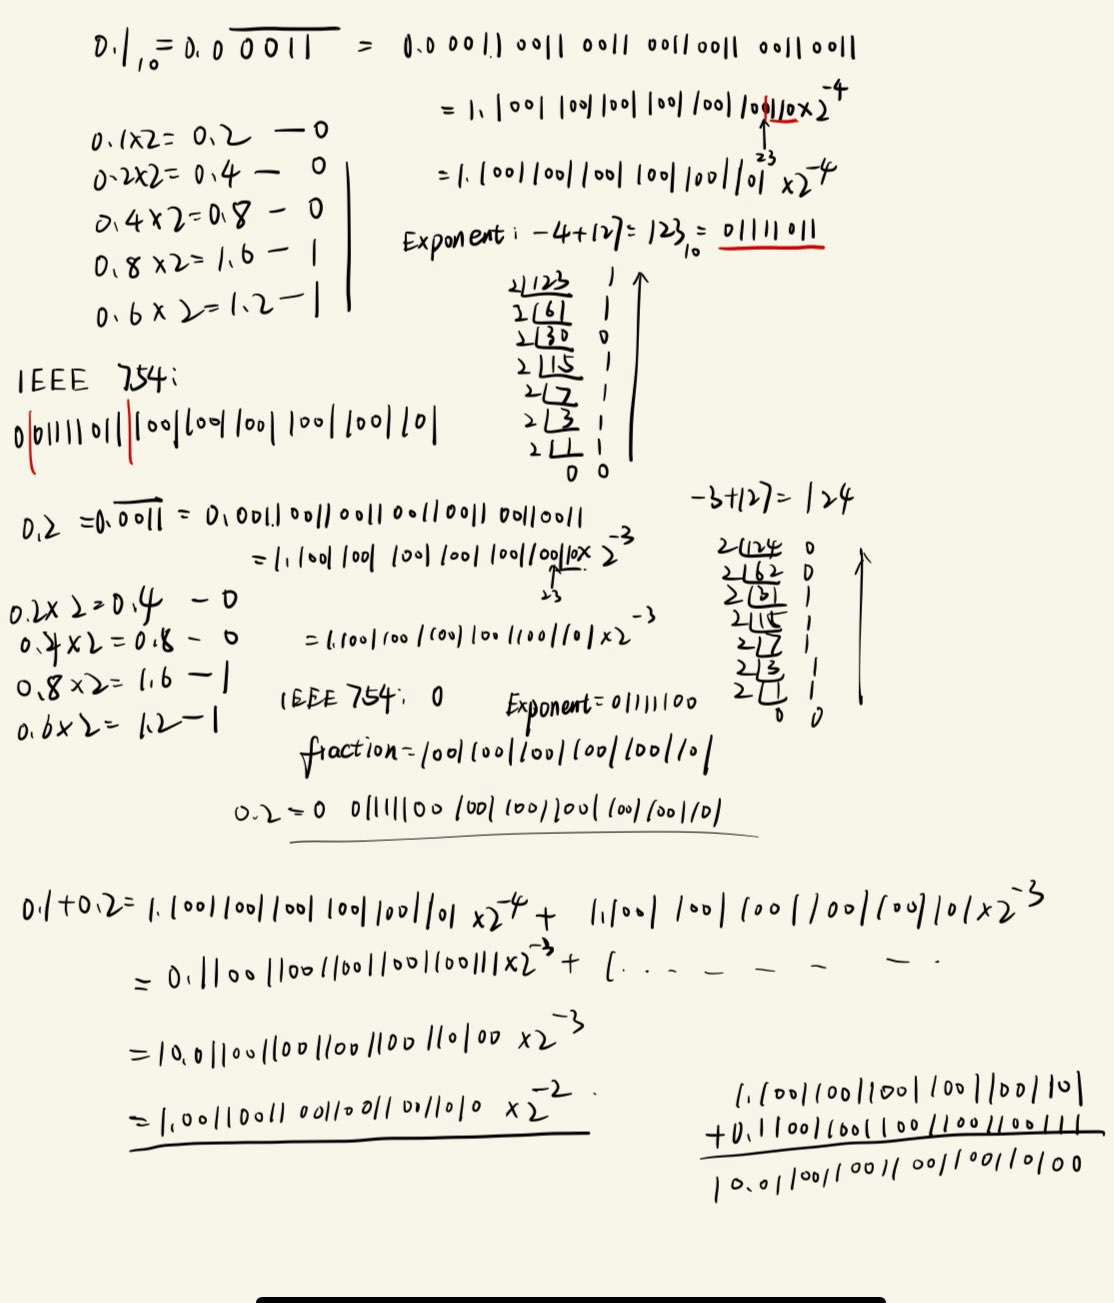 0.1₁₀ = 0.0 0011 = 0.0 0011 0011 0011 0011 0011 0011 0011
= 1.1001 1001 1001 1001 1001 100110 × 2⁻⁴
23
= 1.1001 1001 1001 1001 1001 101 × 2⁻⁴
0.1×2= 0.2 — 0
0.2×2= 0.4 — 0
0.4×2=0.8 - 0
0.8×2= 1.6 - 1
0.6×2=1.2 - 1
Exponent: -4+127= 123₁₀ = 01111011
2|123 1
2|61 1
2|30 0
2|15 1
2|7 1
2|3 1
2|1 1
0 0
IEEE 754:
0|01111011|1001 1001 1001 1001 1001 101
0.2 =0.0011 = 0.0011 0011 0011 0011 0011 0011 0011
= 1.1001 1001 1001 1001 1001 100110× 2⁻³
23
= 1.1001 1001 1001 1001 1001 101 ×2⁻³
-3+127= 124
2|124 0
2|62 0
2|31 1
2|15 1
2|7 1
2|3 1
2|1 1
0 0
0.2×2=0.4 - 0
0.4×2=0.8 - 0
0.8×2= 1.6 - 1
0.6×2= 1.2 - 1
IEEE 754: 0 Exponent=01111100
fraction=1001 1001 1001 1001 1001 101
0.2 = 0 01111100 1001 1001 1001 1001 1001 101
0.1+0.2= 1.1001 1001 1001 1001 1001 101 ×2⁻⁴ + 1.1001 1001 1001 1001 1001 101×2⁻³
= 0.11001100110011001100111×2⁻³ + 1. . . - - - - - .
= 10.01100110011001100110100 ×2⁻³
= 1.00110011 00110011 0011010 ×2⁻² .
1.10011001100110011001101
+0.11001100110011001100111
10.01100110011001100110100